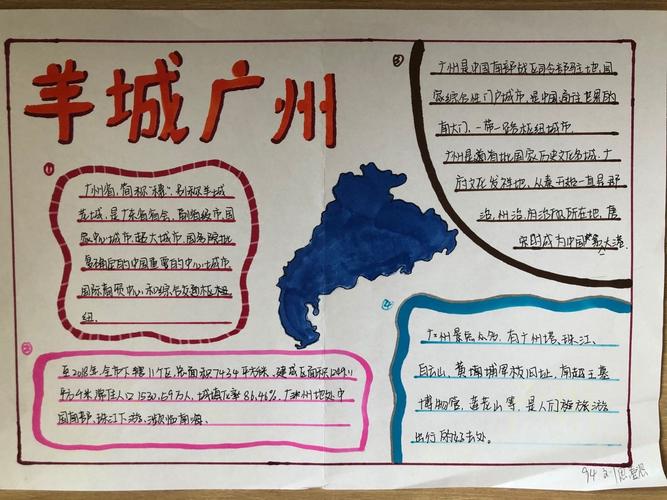 羊城广州
①
广州省,简称"穗",别称羊城
花城,是广东省省会、副省级市、国
家中心城市、超大城市、国务院批
复确定的中国重要的中心城市
国际商贸中心和综合交通枢纽
纽.
②
至2018年,全市下辖11个区,总面积7434平方千米、建成区面积
平方千米,常住人口1530.59万人,城镇化率86.46%.广州地处中
国南部、珠江下游、濒临南海.
③
广州是中国南部战区司令部驻地,国
家综合性门户城市,是中国南往世界的
南大门,一带一路枢纽城市
广州是首批国家历史文化名城,广
府文化发祥地,从秦开始一直是郡
治、州治、府治的所在地,唐
宋时成为中国第大港.
④
广州景点众多,有广州塔、珠江、
白云山、黄埔军校旧址、南越王墓
博物馆、莲花山等,是人们旅游
出行的好去处.
94 刘思